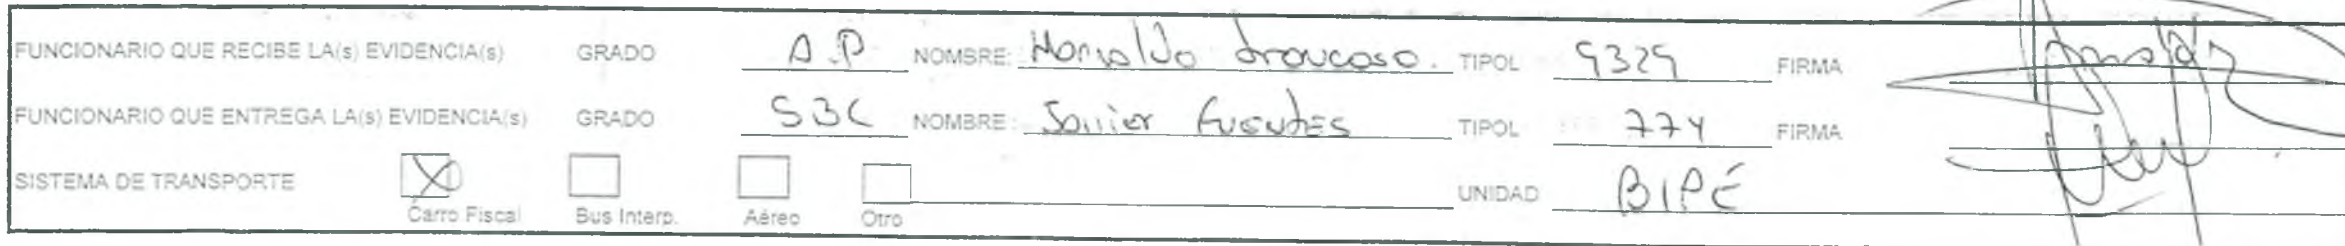 FUNCIONARIO QUE RECIBE LA(s) EVIDENCIA(s) GRADO A.P NOMBRE: TIPOL 9329 FIRMA
FUNCIONARIO QUE ENTREGA LA(s) EVIDENCIA(s) GRADO SBC NOMBRE: Javier Fuentes TIPOL 774 FIRMA
SISTEMA DE TRANSPORTE UNIDAD BIPÉ
Carro Fiscal Bus Interp. Aéreo Otro